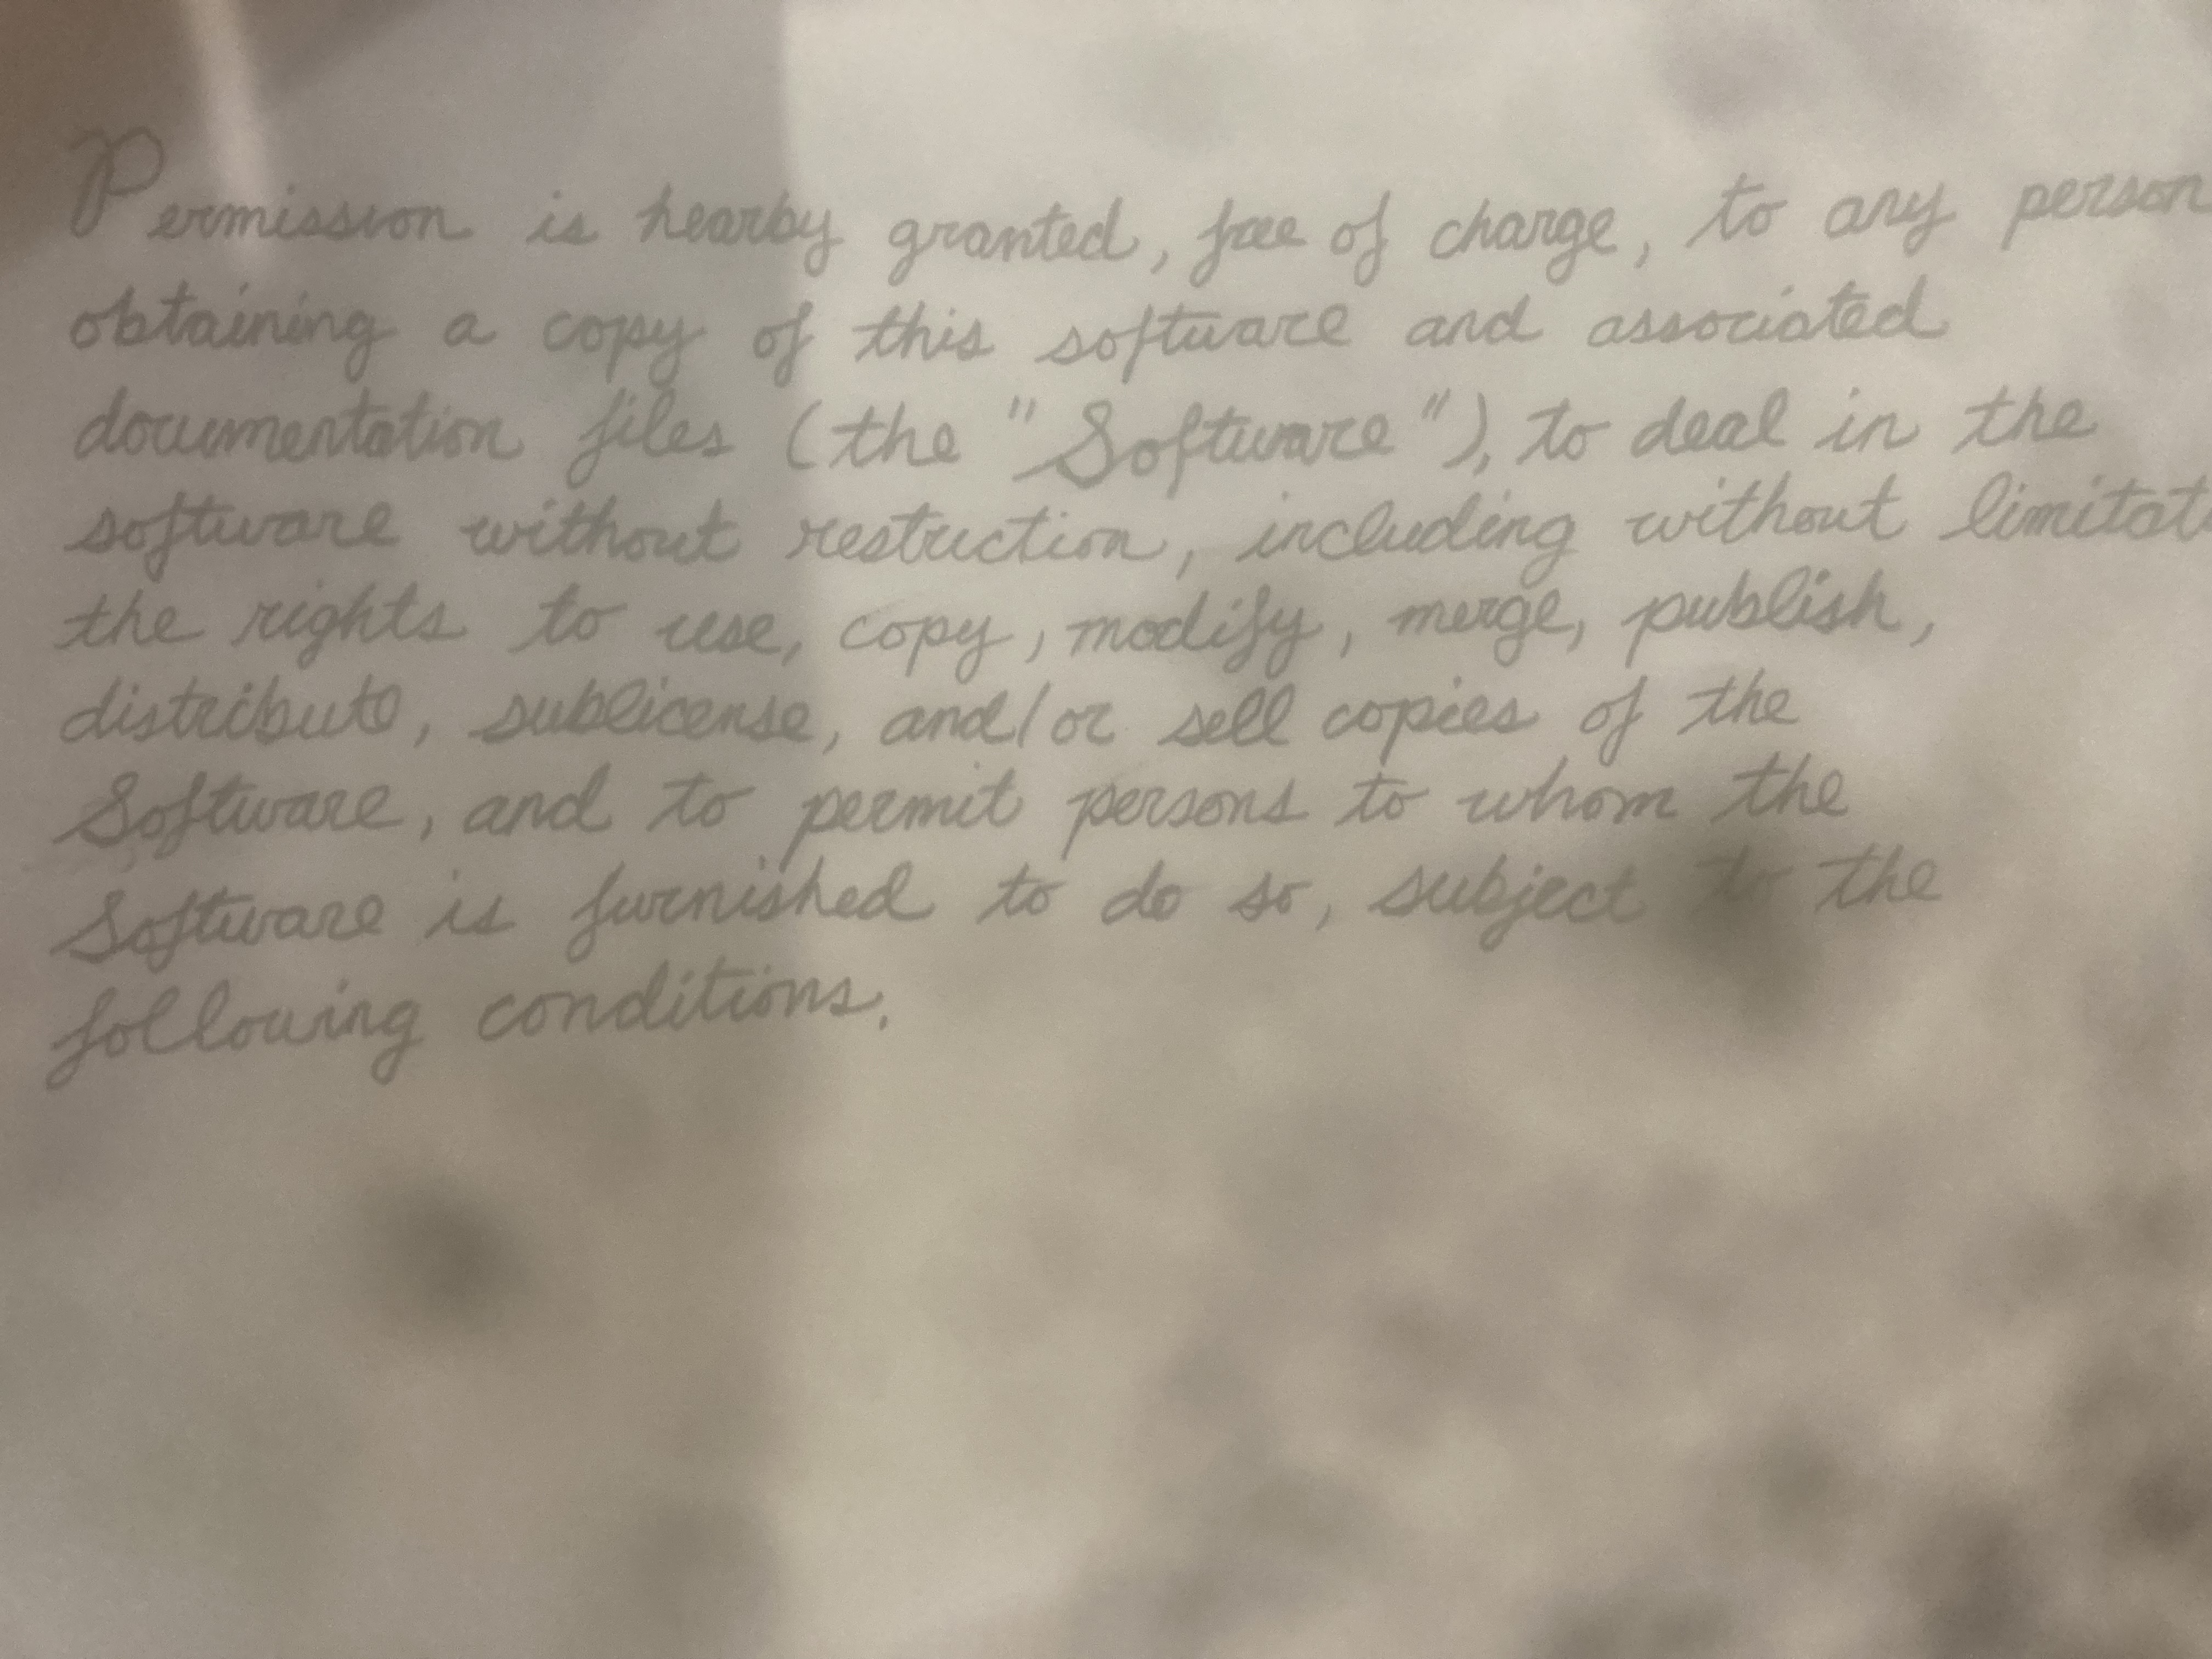 Permission is hearby granted, free of charge, to any person
obtaining a copy of this software and associated
documentation files (the "Software"), to deal in the
software without restruction, including without limitat
the rights to use, copy, modify, merge, publish,
distribute, sublicense, and/or sell copies of the
Software, and to permit persons to whom the
Software is furnished to do so, subject to the
following conditions.